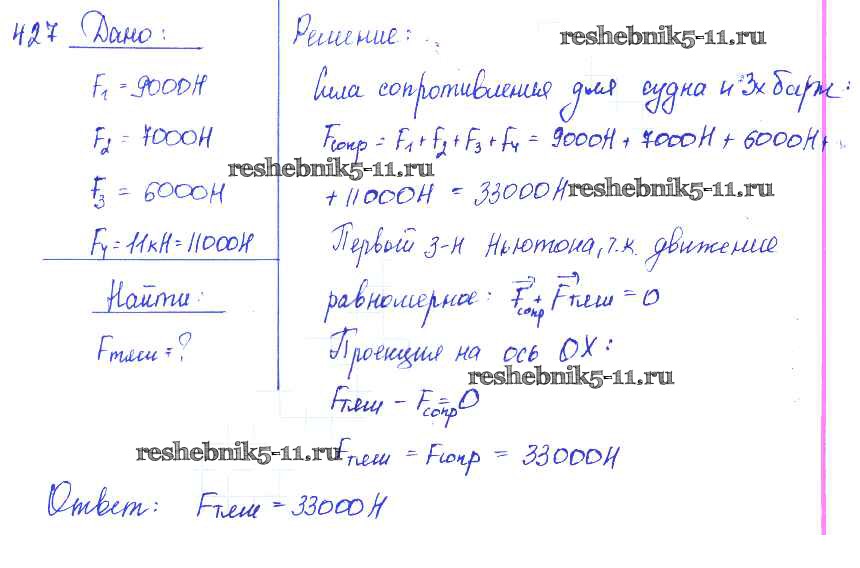 427 Дано:
F₁ = 9000Н
F₂ = 7000Н
F₃ = 6000Н
F₄ = 11кН = 11000Н
Найти:
Fтяги = ?
Решение:
reshebnik5-11.ru
Сила сопротивления для судна и 3х барж:
Fсопр = F₁ + F₂ + F₃ + F₄ = 9000Н + 7000Н + 6000Н +
reshebnik5-11.ru
+ 11000Н = 33000Н
reshebnik5-11.ru
Первый з-н Ньютона, т.к. движение
равномерное: F⃗сопр + F⃗тяги = 0
Проекция на ось OX:
reshebnik5-11.ru
Fтяги - Fсопр = 0
reshebnik5-11.ru
Fтяги = Fсопр = 33000Н
Ответ: Fтяги = 33000Н